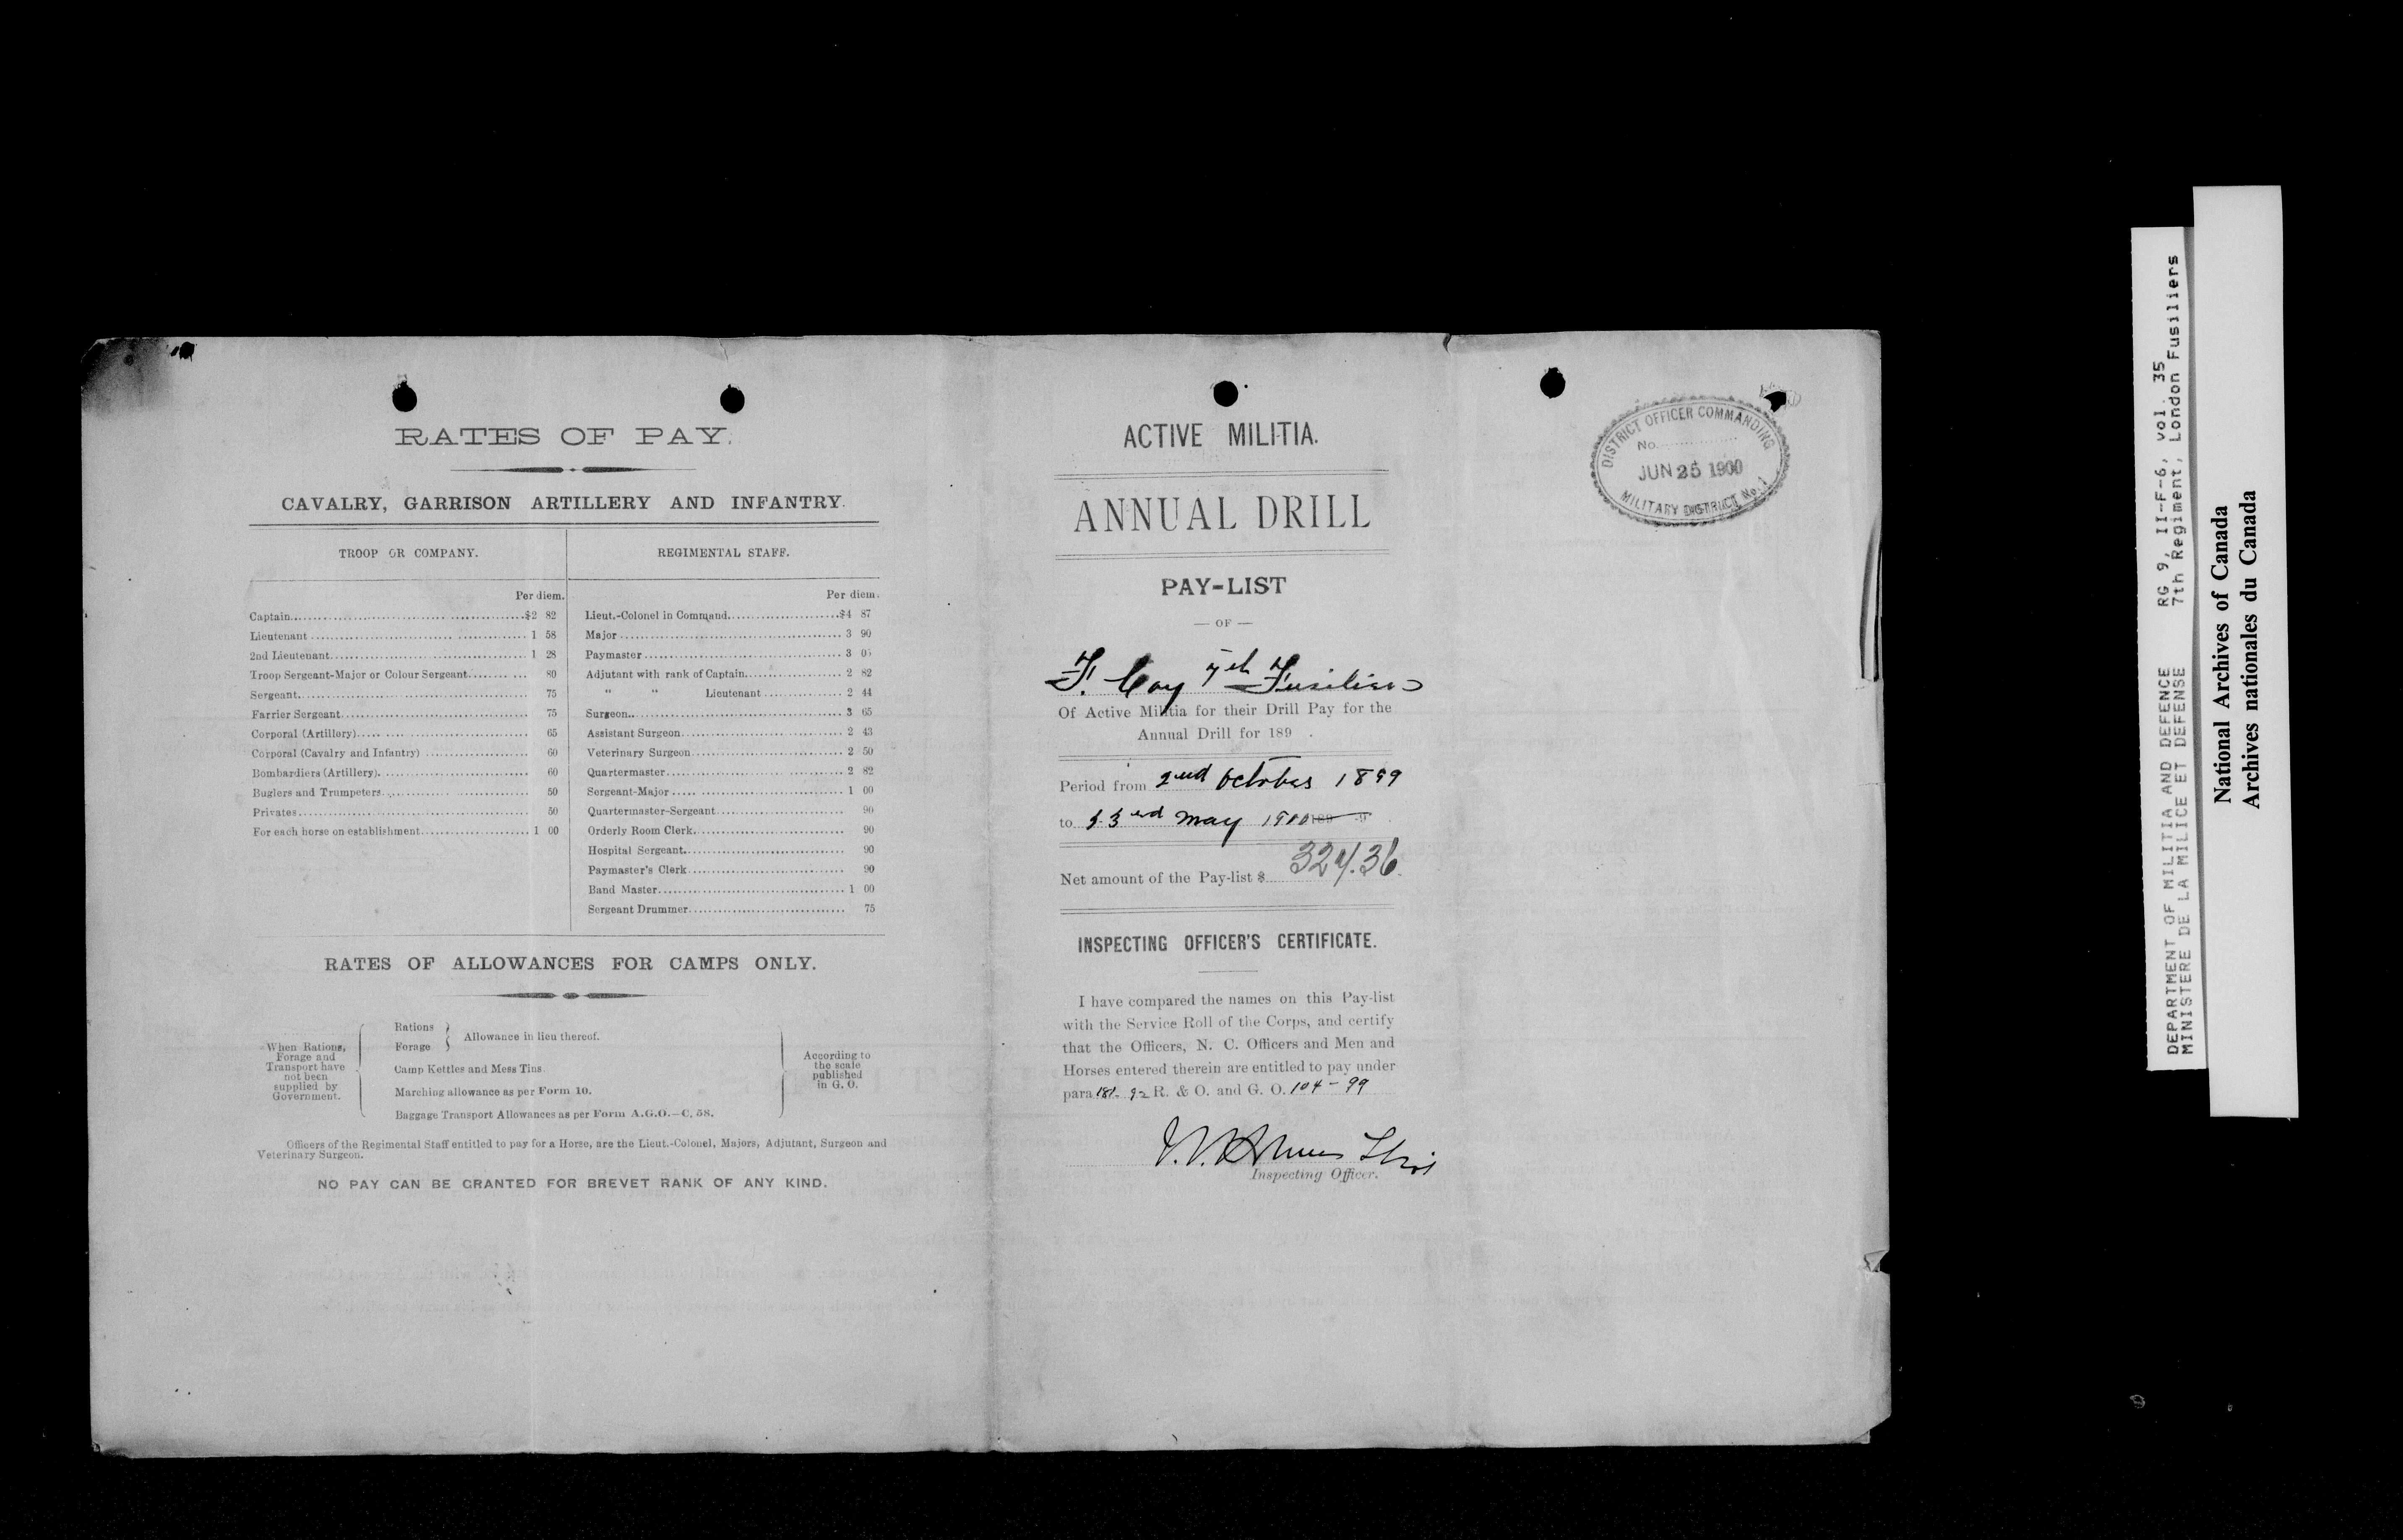 RATES OF PAY.
CAVALRY, GARRISON ARTILLERY AND INFANTRY.
TROOP OR COMPANY.
Per diem.
Captain $2 82
Lieutenant 1 58
2nd Lieutenant 1 28
Troop Sergeant-Major or Colour Sergeant 80
Sergeant 75
Farrier Sergeant 75
Corporal (Artillery) 65
Corporal (Cavalry and Infantry) 60
Bombardiers (Artillery) 60
Buglers and Trumpeters 50
Privates 50
For each horse on establishment 1 00
REGIMENTAL STAFF.
Per diem.
Lieut.-Colonel in Command $4 87
Major 3 90
Paymaster 3 05
Adjutant with rank of Captain 2 82
" " Lieutenant 2 44
Surgeon 3 65
Assistant Surgeon 2 43
Veterinary Surgeon 2 50
Quartermaster 2 82
Sergeant-Major 1 00
Quartermaster-Sergeant 90
Orderly Room Clerk 90
Hospital Sergeant 90
Paymaster's Clerk 90
Band Master 1 00
Sergeant Drummer 75
RATES OF ALLOWANCES FOR CAMPS ONLY.
When Rations,
Forage and
Transport have
not been
supplied by
Government.
Rations
Forage
Allowance in lieu thereof.
Camp Kettles and Mess Tins.
Marching allowance as per Form 10.
Baggage Transport Allowances as per Form A.G.O.—C. 58.
According to
the scale
published
in G. O.
Officers of the Regimental Staff entitled to pay for a Horse, are the Lieut.-Colonel, Majors, Adjutant, Surgeon and
Veterinary Surgeon.
NO PAY CAN BE GRANTED FOR BREVET RANK OF ANY KIND.
ACTIVE MILITIA.
ANNUAL DRILL
PAY-LIST
— OF —
F. Coy 7th Fusiliers
Of Active Militia for their Drill Pay for the
Annual Drill for 189 .
Period from 2nd October 1899
to May 1900
Net amount of the Pay-list $ 324.36
INSPECTING OFFICER'S CERTIFICATE.
I have compared the names on this Pay-list
with the Service Roll of the Corps, and certify
that the Officers, N. C. Officers and Men and
Horses entered therein are entitled to pay under
para 181-92 R. & O. and G. O. 104-99
Inspecting Officer.
DISTRICT OFFICER COMMANDING
No.
JUN 25 1900
MILITARY DISTRICT No. 1
DEPARTMENT OF MILITIA AND DEFENCE RG 9, II-F-6, vol. 35
MINISTERE DE LA MILICE ET DEFENSE 7th Regiment, London Fusiliers
National Archives of Canada
Archives nationales du Canada